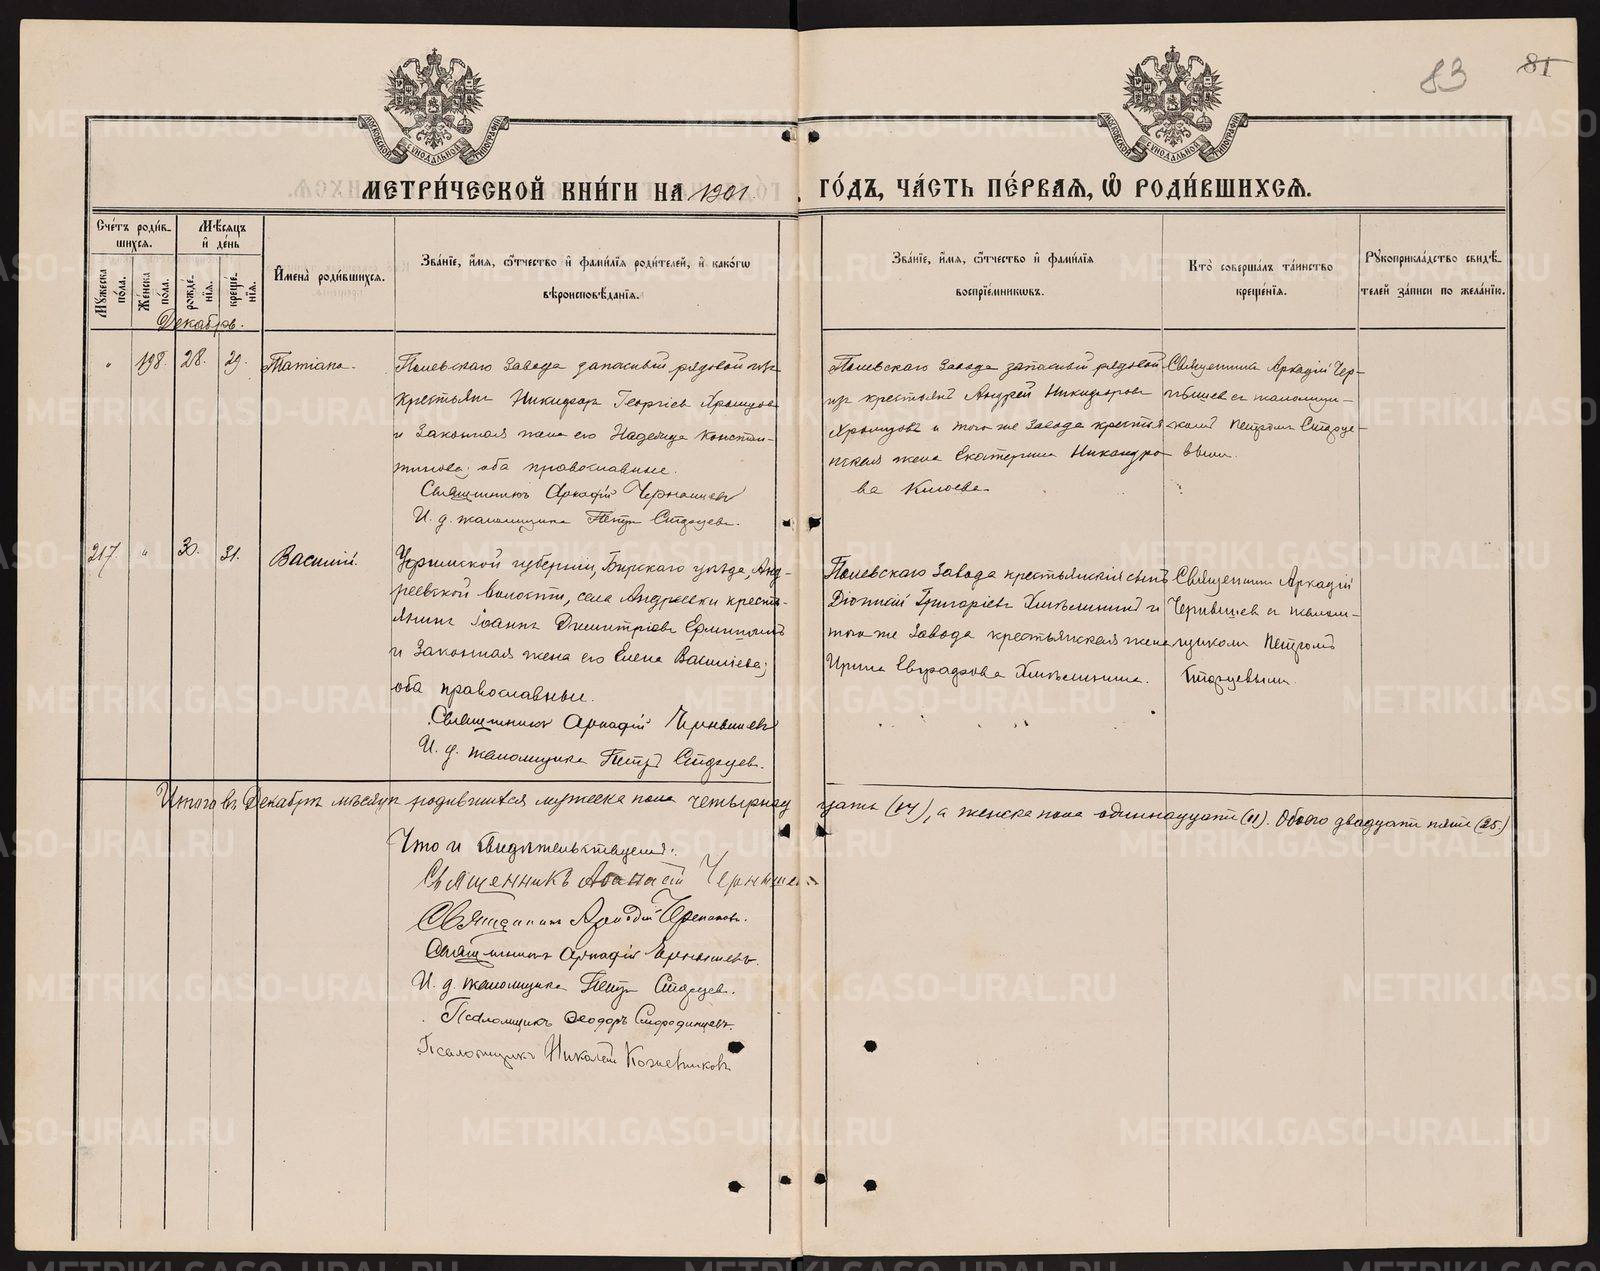 83 81
МЕТРИЧЕСКОЙ КНИГИ НА 1901 ГОДЪ, ЧАСТЬ ПЕРВАЯ, Ѡ РОДИВШИХСЯ.
Счетъ родившихся.
Мужеска пола.
Женска пола.
Мѣсяцъ и день
рожденія.
крещенія.
Имена родившихся.
Званіе, имя, отчество и фамилія родителей, и какогѡ
вѣроисповѣданія.
Званіе, имя, отчество и фамилія
воспріемниковъ.
Кто совершалъ таинство
крещенія.
Рукоприкладство свидѣ-
телей записи по желанію.
Декабрь.
" 198. 28. 29. Татіана.
Полевскаго Завода запасный рядовой изъ
крестьянъ Никифоръ Георгіевъ Хромцовъ
и Законная жена его Надежда Констан-
тинова; оба православные.
Священникъ Аркадій Чернышевъ
И. д. псаломщика Петръ Старцев.
Полевскаго Завода запасный рядовой
изъ крестьянъ Андрей Никифоровъ
Хромцовъ и того же Завода крестья
нская жена Екатерина Никандро
ва Клюева
Священникъ Аркадій Чер-
нышев съ псаломщи-
комъ Петромъ Старце-
вымъ.
217. " 30. 31. Василій.
Уфимской губерніи, Бирскаго уѣзда, Анд-
реевской волости, села Андреевки кресть-
янинъ Іоаннъ Дмитріевъ
и Законная жена его Елена Василіева;
оба православные.
Священникъ Аркадій Чернышевъ
И. д. псаломщика Петръ Старцев.
Полевскаго Завода крестьянскій сынъ
Діонисій Григоріевъ Хмѣлининъ и
того же Завода крестьянская жена
Ирина Евграфова Хмѣлинина.
Священникъ Аркадій
Чернышев съ псалом-
щикомъ Петромъ
Старцевымъ.
Итого въ Декабрѣ мѣсяцѣ родившихся мужеска пола четырнад цать (14), а женска пола одиннадцать (11). Обоего двадцать пять (25)
Что и свидѣтельствуемъ:
Священникъ Аѳанасій Чернышев
Священникъ Аркадій
Священникъ Аркадій Чернышевъ.
И. д. псаломщика Петръ Старцев.
Псаломщикъ Ѳеодоръ Смородинцевъ.
Псаломщикъ Николай Кожевниковъ
METRIKI.GASO-URAL.RU